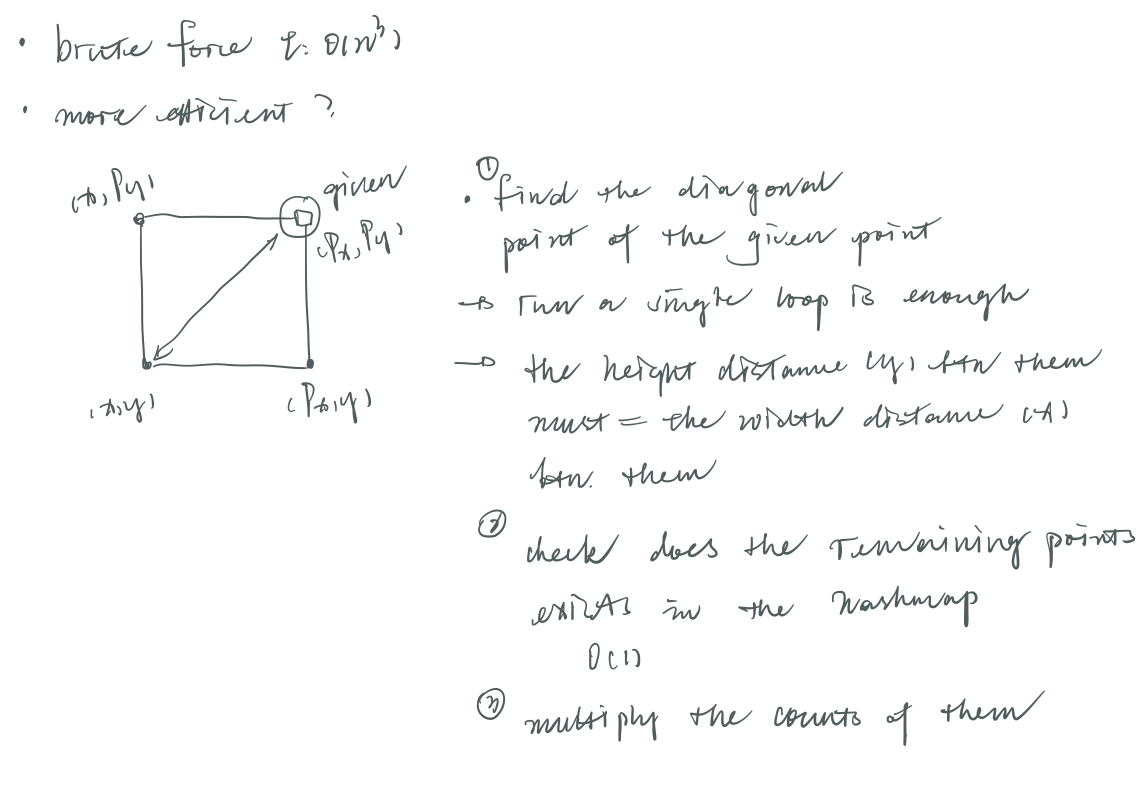 • brute force t: O(n³)
• more efficient ?
(x, Py)
given
(Px, Py)
(x,y)
(Px, y)
• ① find the diagonal
point of the given point
→ run a single loop is enough
→ the height distance (y) btn them
must = the width distance (x)
btn. them
② check does the remaining points
exists in the hashmap
O(1)
③ multiply the counts of them